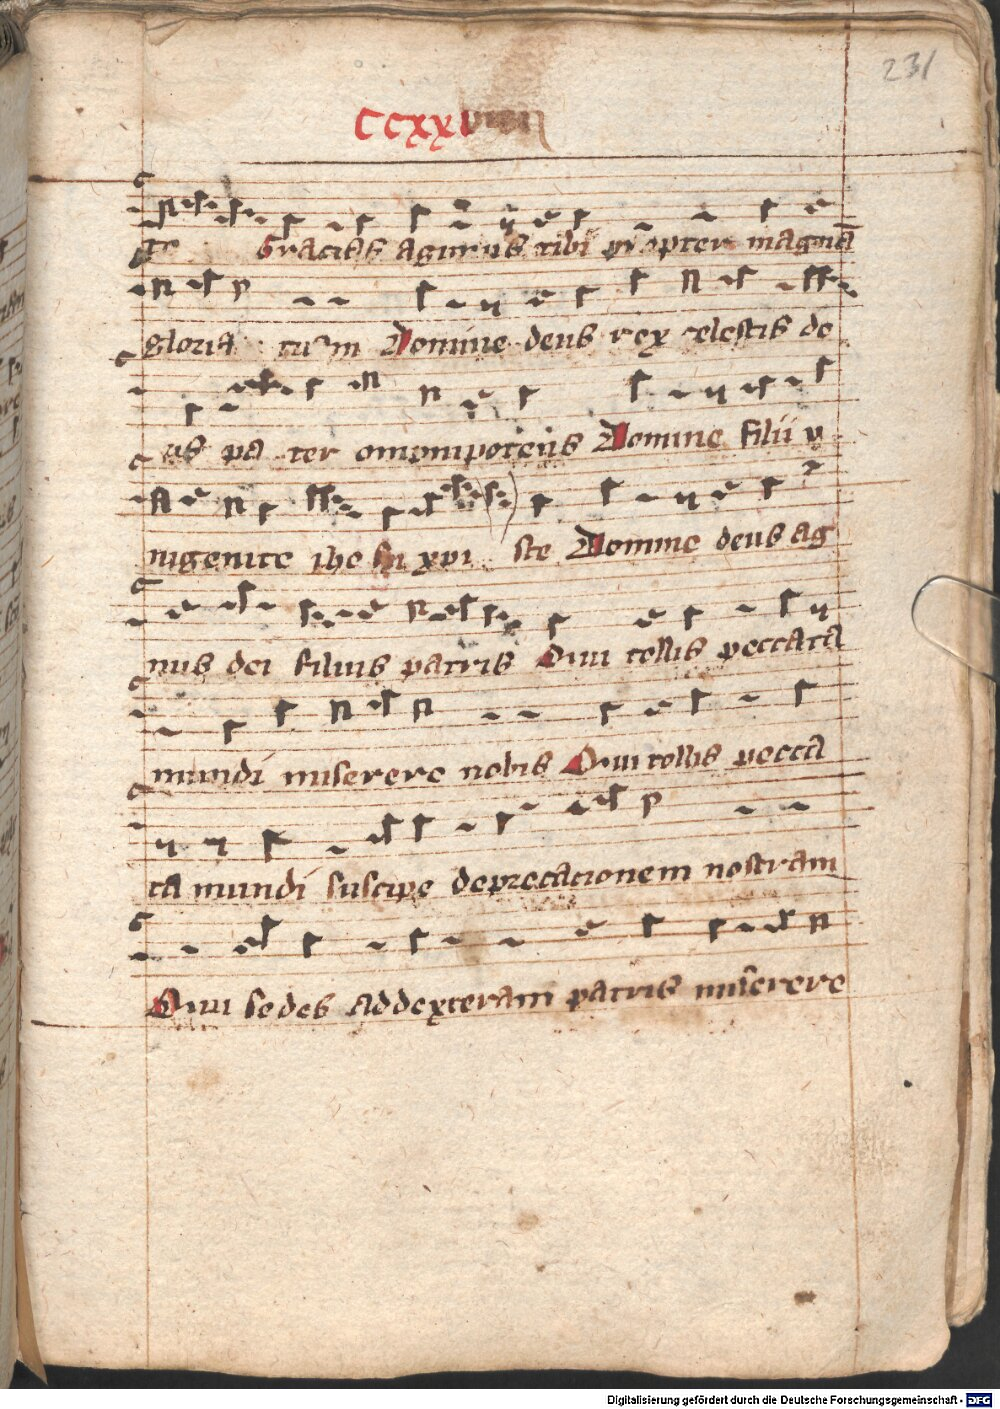 231
CCXXVIIII
te Gracias agimus tibi propter magnā
gloria tuam Domine deus rex celestis de
us pa ter omnipotens Domine filii v
nigenite ihe su xpi ste Domine deus ag
nus dei filius patris Qui tollis peccata
mundi miserere nobis Qui tollis pecca
ta mundi suscipe deprecacionem nostram
Qui sedes ad dexteram patris miserere
Digitalisierung gefördert durch die Deutsche Forschungsgemeinschaft - DFG